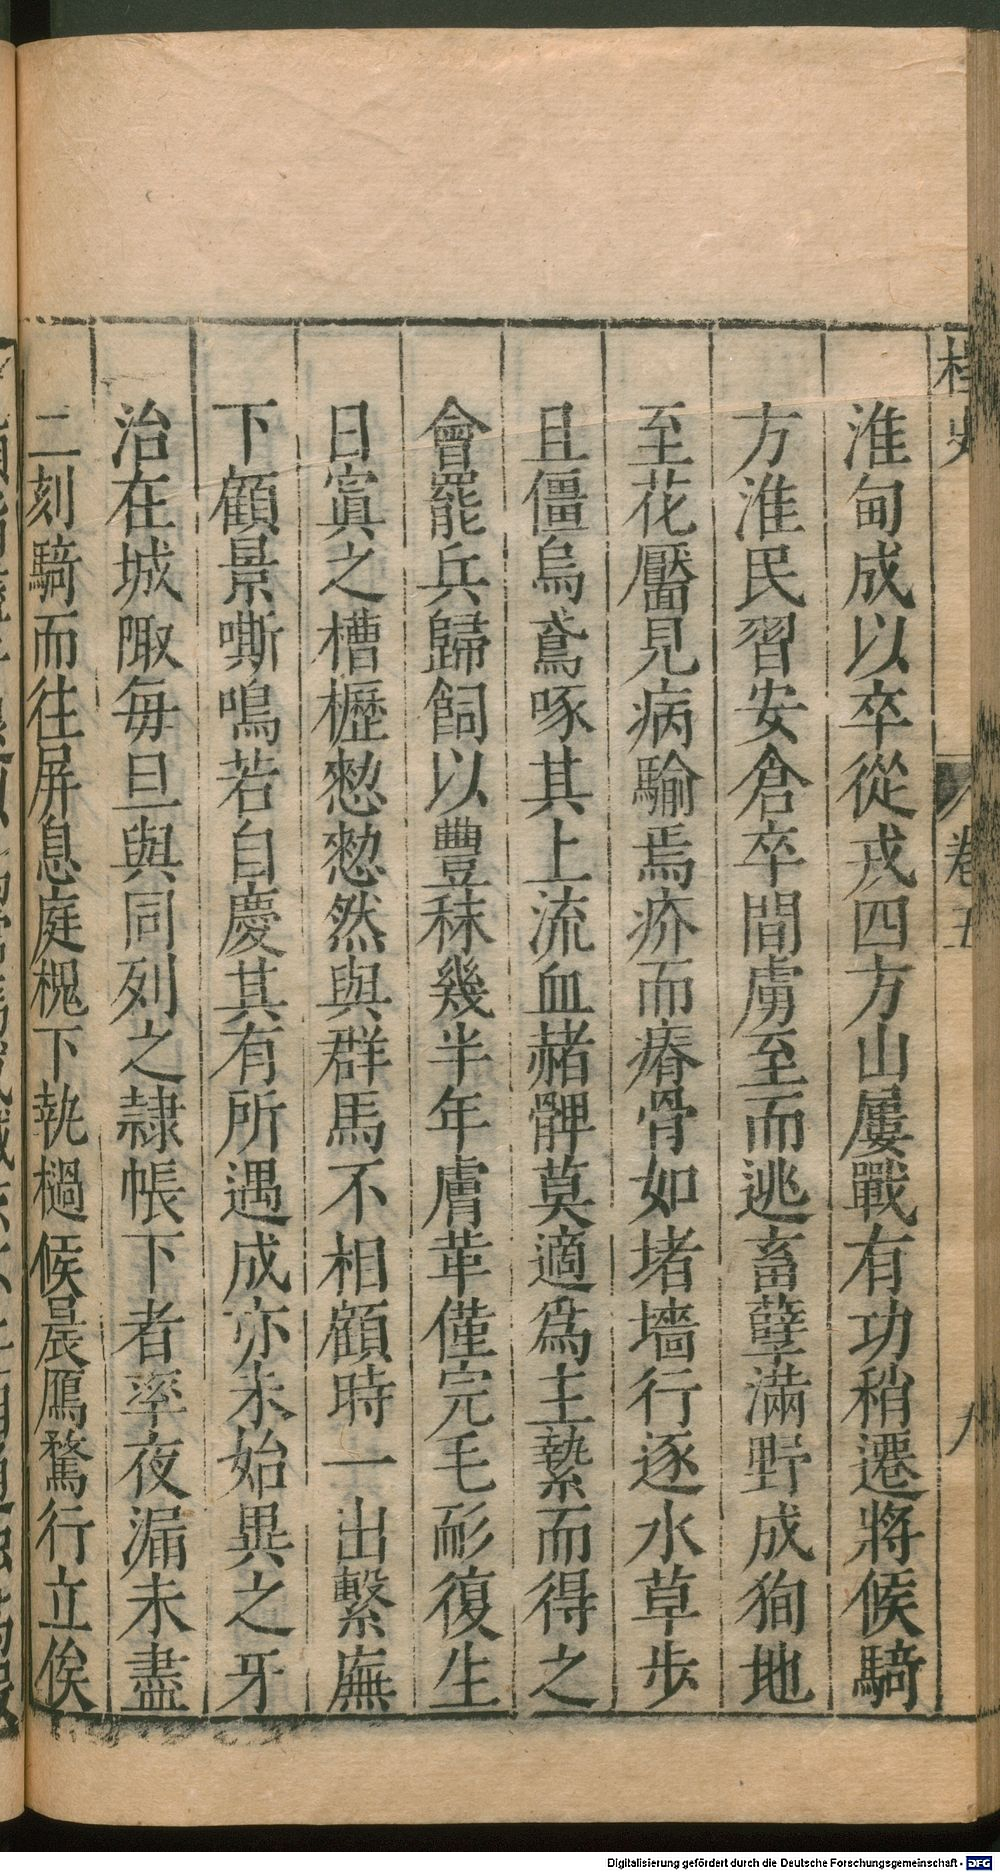 桯史
卷五
九
淮甸成以卒從戎四方山屢戰有功稍遷將候騎
方淮民習安倉卒間虜至而逃畜孽滿野成狥地
至花靨見病騟焉疥而瘠骨如堵墻行逐水草步
且僵烏鳶啄其上流血赭髀莫適爲主縶而得之
會罷兵歸飼以豐秣幾半年膚革僅完毛彩復生
日寘之槽櫪憗憗然與群馬不相顧時一出繫廡
下顧景嘶鳴若自慶其有所遇成亦未始異之牙
治在城陬每旦與同列之隸帳下者率夜漏未盡
二刻騎而往屏息庭槐下執檛候晨鴈騖行立俟
Digitalisierung gefördert durch die Deutsche Forschungsgemeinschaft - DFG